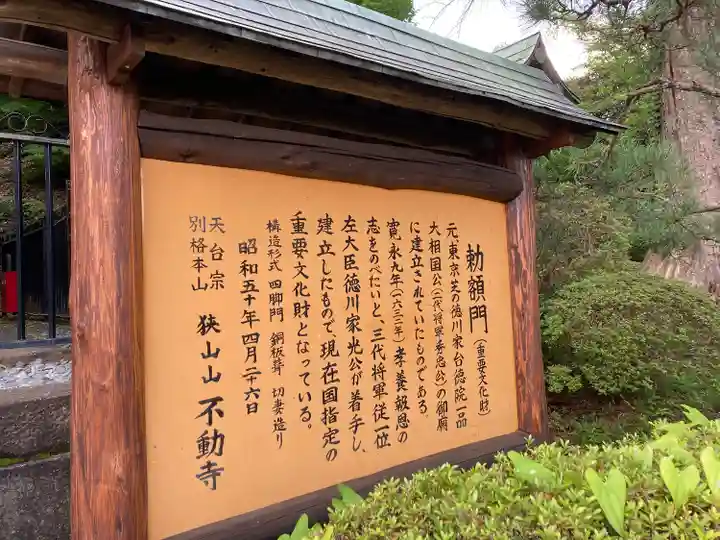 勅額門(重要文化財)
元、東京芝の徳川家台徳院一品
大相国公(二代将軍秀忠公)の御廟
に建立されていたものである。
寛永九年(一六三二年)孝養報恩の
志をのべたいと、三代将軍従一位
左大臣徳川家光公が着手し、
建立したもので現在国指定の
重要文化財となっている。
構造形式 四脚門 銅板葺 切妻造り
昭和五十年四月二十六日
天台宗
別格本山
狭山山不動寺